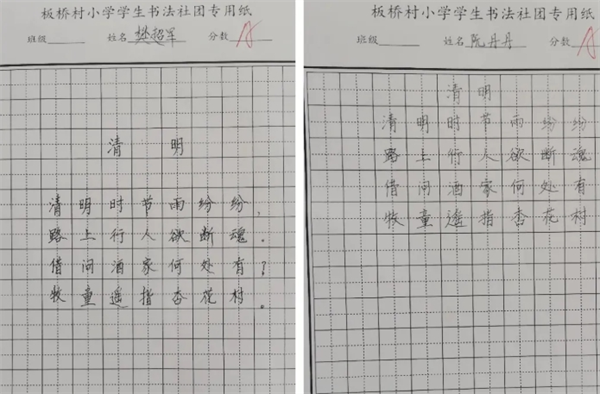 板桥村小学学生书法社团专用纸
班级 姓名 樊超军 分数 A
清 明
清明时节雨纷纷,
路上行人欲断魂.
借问酒家何处有?
牧童遥指杏花村。
板桥村小学学生书法社团专用纸
班级 姓名 阮丹丹 分数 A
清明
清明时节雨纷纷
路上行人欲断魂
借问酒家何处有
牧童遥指杏花村